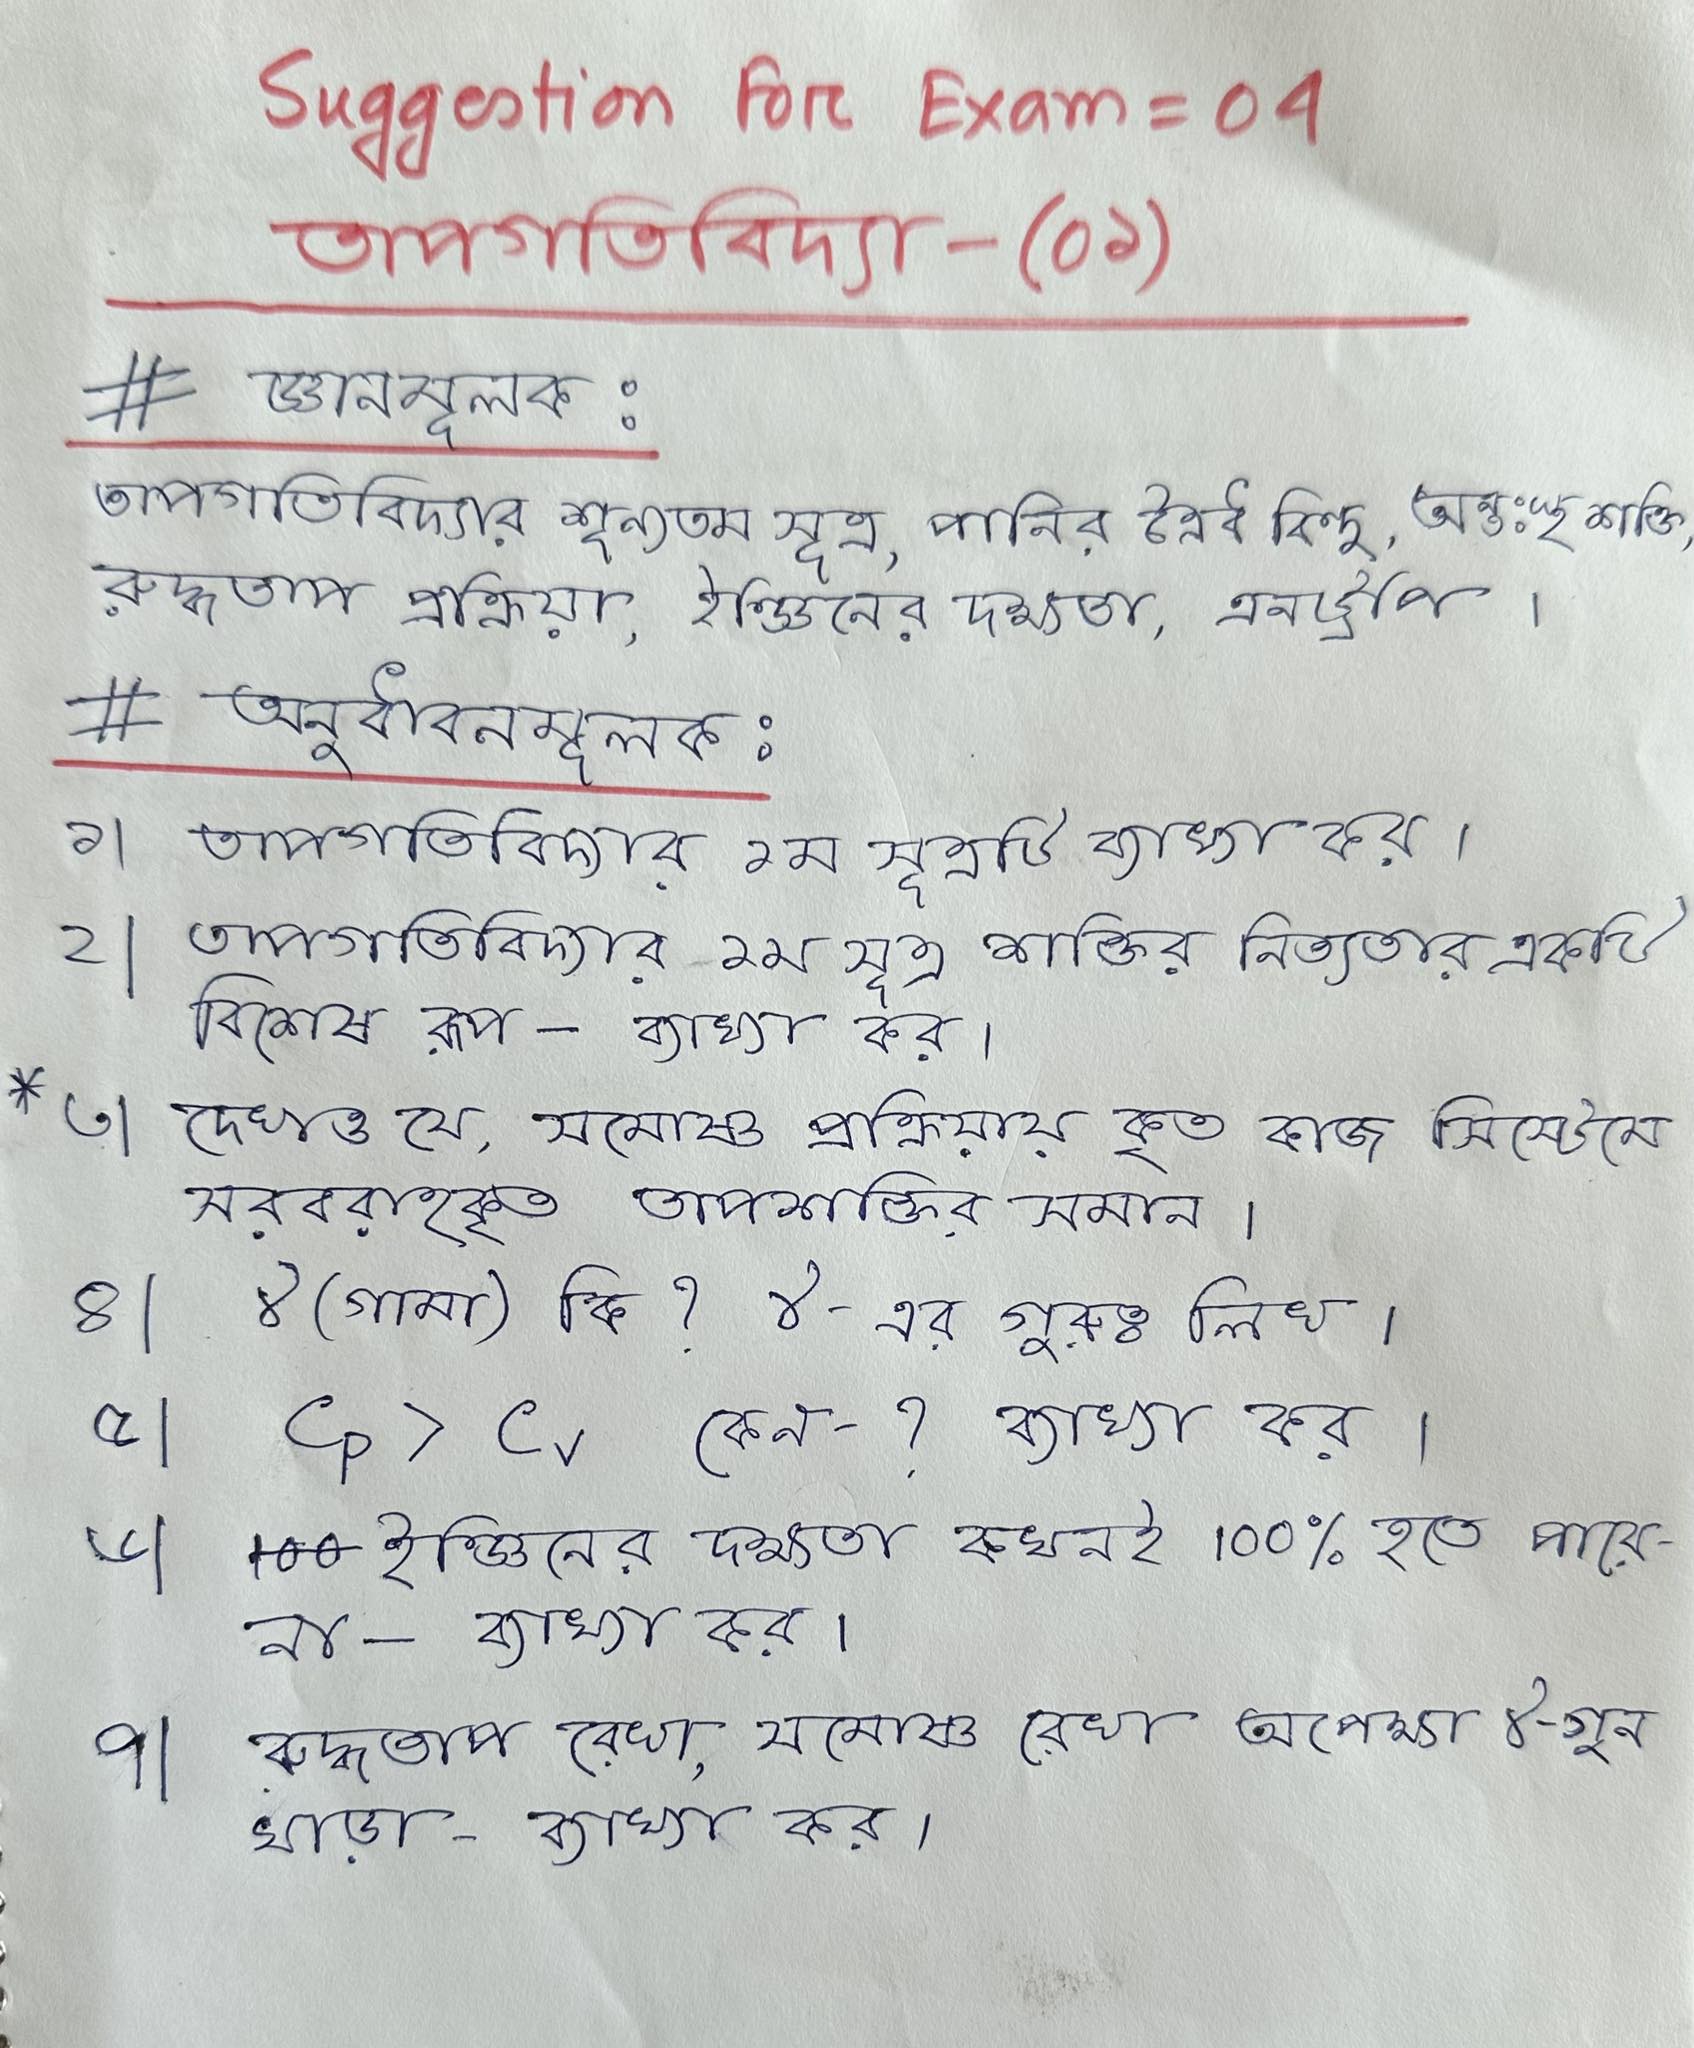 Suggestion For Exam = 04
তাপগতিবিদ্যা - (০১)
# জ্ঞানমূলক :
তাপগতিবিদ্যার শূন্যতম সূত্র, পানির ত্রৈধ বিন্দু, অন্তঃস্থ শক্তি,
রুদ্ধতাপ প্রক্রিয়া, ইঞ্জিনের দক্ষতা, এনট্রপি ।
# অনুধাবনমূলক :
১| তাপগতিবিদ্যার ১ম সূত্রটি ব্যাখ্যা কর ।
২| তাপগতিবিদ্যার ১ম সূত্র শক্তির নিত্যতার একটি
বিশেষ রূপ - ব্যাখ্যা কর ।
* ৩| দেখাও যে, সমোষ্ণ প্রক্রিয়ায় কৃত কাজ সিস্টেমে
সরবরাহকৃত তাপশক্তির সমান ।
৪| γ (গামা) কি ? γ - এর গুরুত্ব লিখ ।
৫| Cp > Cv কেন - ? ব্যাখ্যা কর ।
৬| 100 ইঞ্জিনের দক্ষতা কখনই 100% হতে পারে-
না - ব্যাখ্যা কর ।
৭| রুদ্ধতাপ রেখা, সমোষ্ণ রেখা অপেক্ষা γ-গুন
খাড়া - ব্যাখ্যা কর ।